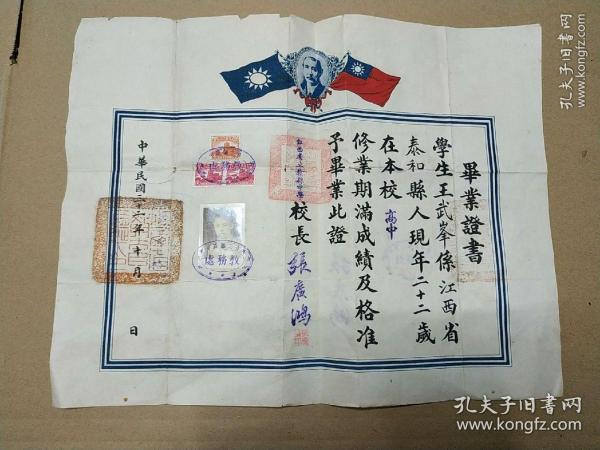 畢業證書
學生王武峯係江西省
泰和縣人現年二十二歲
在本校高中
修業期滿成績及格准
予畢業此證
校長 張廣鴻
教務處
教務處
中華民國三十六年十一月
日
孔夫子旧书网
www.kongfz.com
孔夫子旧书网
www.kongfz.com